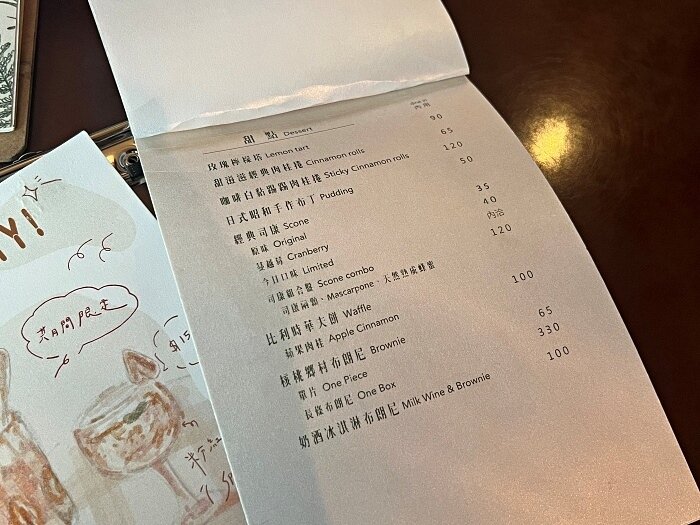 甜點 Dessert
內用
玫瑰檸檬塔 Lemon tart 90
甜滋滋經典肉桂捲 Cinnamon rolls 65
咖啡白黏踢踢肉桂捲 Sticky Cinnamon rolls 120
日式昭和手作布丁 Pudding 50
經典司康 Scone
原味 Original 35
蔓越莓 Cranberry 40
今日口味 Limited 內洽
司康組合盤 Scone combo 120
司康兩顆、Mascarpone、天然熟成蜂蜜
比利時華夫餅 Waffle
蘋果肉桂 Apple Cinnamon 100
核桃鄉村布朗尼 Brownie
單片 One Piece 65
長條布朗尼 One Box 330
奶酒冰淇淋布朗尼 Milk Wine & Brownie 100
期間限定
$15